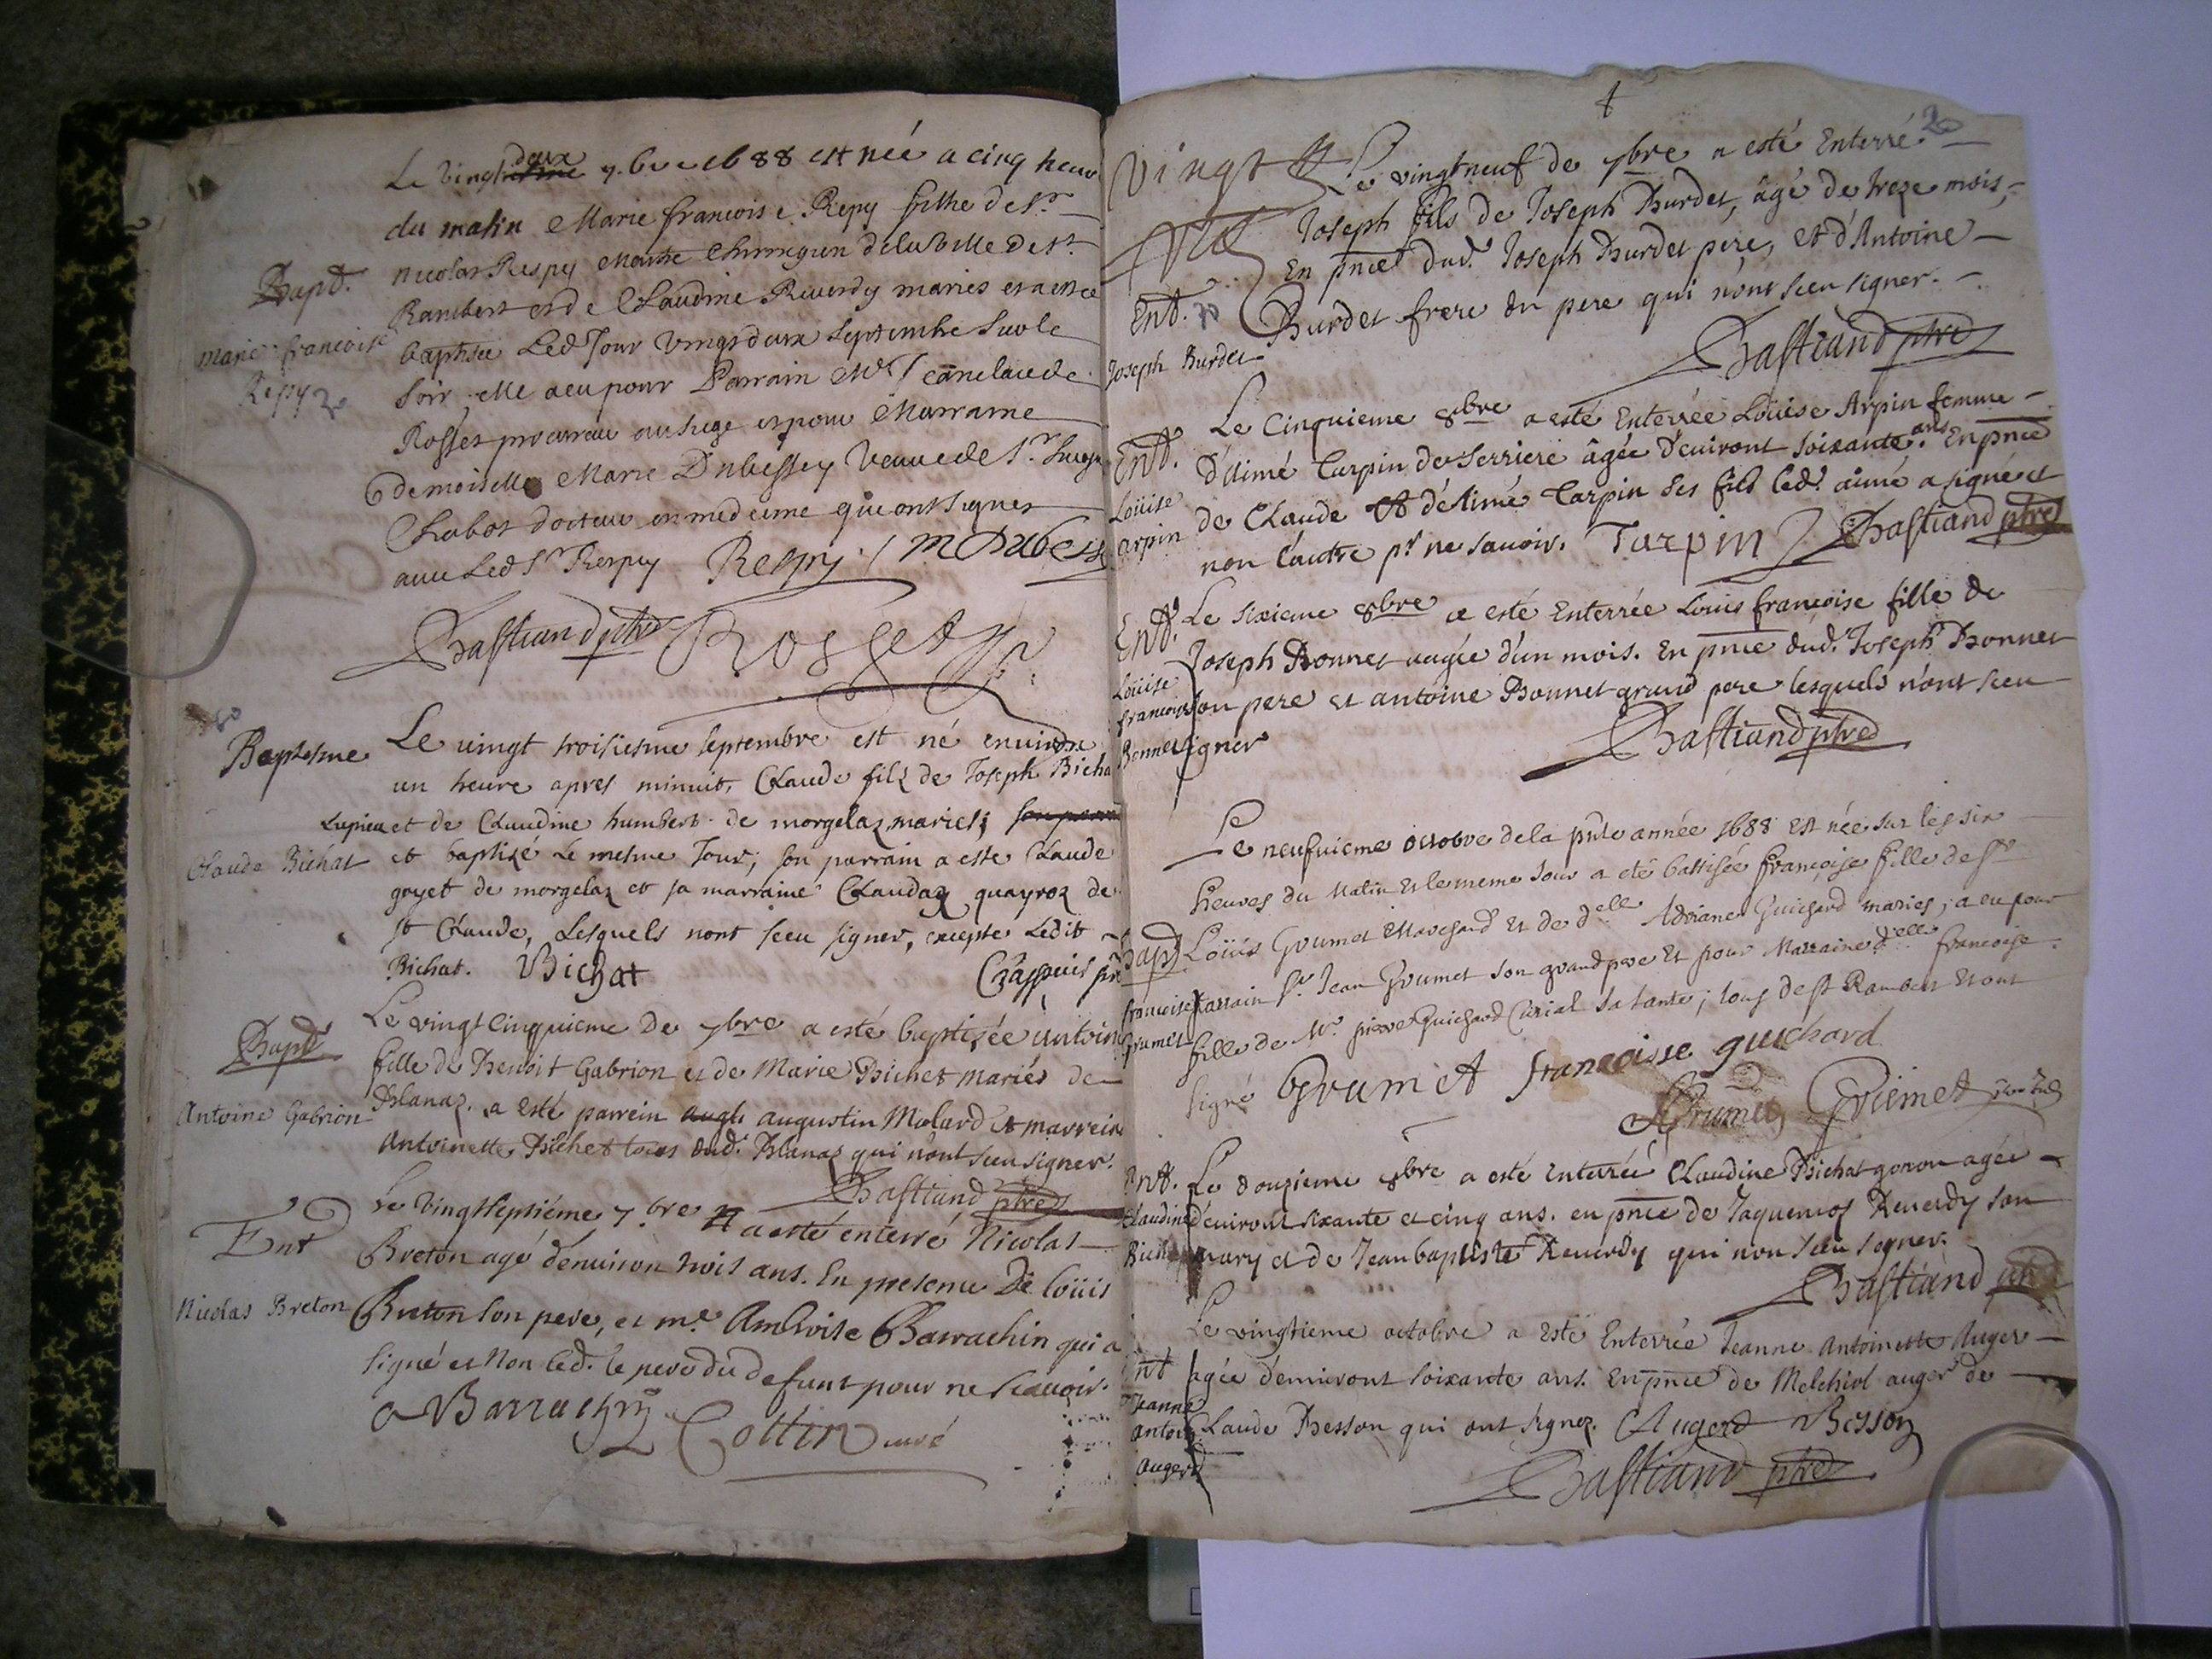 Le vingt deux 7.bre 1688 est née a cinq heur
du matin Marie francoise Repy fillie de Sr
Bapt.
nicolas Respy Maitre Chirurgien de la ville de St
Rambert et de Claudine Reverdy mariés et a esté
marie francoise
baptisée Led Jour vingt deux Septembre sur le
Repy
soir elle a eu pour Parrain Mr Jean claude
Rosset procureur au siege et pour Marraine
demoiselle Marie Dubessey veuve de Sr
Chabot docteur en medecine qui ont signés
avec Led Sr Respy Respy M Dubess
Bastiand ptre Rosset
Baptesme
Le vingt troisiesme septembre est né environ
un heure apres minuit, Claude filz de Joseph Bicha
Lupieu et de Claudine humbert de morgelaz mariés;
Claude Bichat
et baptizé le mesme Jour; son parrain a esté Claude
goyet de morgelaz et sa marraine Claudaz quayroz de
st Claude, Lesquels nont sceu signer, excepté Ledit
Bichat. Bichat Chappuis ptr
Le vingt cinquieme de 7bre a esté baptizée antoin
Bapt
fille de Benoit Gabrion et de Marie Bichet mariés de
Antoine Gabrion
Blanaz. a esté parrein augu augustin Molard et marrein
Antoinette Bichet tous dud. Blanaz qui n'ont sceu signer.
Bastiand ptre
Le vingt septiéme 7.bre a esté enterré Nicolas
Ent
Breton agé d'environ trois ans. En presence De Loüis
Nicolas Breton
Breton son pere, et me. Ambroise Barrachin qui a
signé et non led. le pere du defunt pour ne scavoir.
A Barrachin Cottin curé
20
vingt
Le vingt neuf de 7bre a esté Enterré
Joseph fils de Joseph Burdet, âgé de treze mois,
En pnce dud. Joseph Burdet pere, et d'Antoine
Ent.
Burdet frere du pere qui n'ont sceu signer.
Joseph Burdet
Bastiand ptre
Le Cinquieme 8bre a esté Enterrée Loüise Arpin femme
Ent.
d'Aimé Tarpin de Serriere âgée d'environt soixante ans. En pnce
Loüise
arpin
de Claude et d'Aimé Tarpin ses fils led. aimé a signé et
non l'autre pr ne savoir. Tarpin Bastiand ptre
Ent.
Le sixieme 8bre a esté Enterrée Louis françoise fille de
Joseph Bonnet aagée d'un mois. En pnce dud. Joseph Bonnet
Loüise
francoise
son pere et antoine Bonnet grand pere lesquels n'ont sceu
Bonnet
signer
Bastiand ptre
Le neufvieme octobre de la pnte année 1688 est née sur les six
heures du Matin et le meme Jour a eté battisée françoise fille de Sr
Bapt
Loüis Grumet Marchand et de delle Adriane Guichard mariés; a eu pour
francoise
Parrain Sr. Jean Grumet son grand pere et pour Marraine delle francoise
Grumet
fille de Mr. pierre Guichard Curial sa tante; tous de st Rambert et ont
signé Grumet francoisse guichard
Grumet Grumet
Ent.
Le douzieme 8bre a esté enterrée Claudine Bichat gonon agée
Claudine
d'environt sixante et cinq ans. en pnce de Jaquemos Reverdy son
Bichat
mary et de Jean baptiste Reverdy qui non sceu segner.
Bastiand ptre
Le vingtieme octobre a esté Enterrée Jeanne Antoinette Auger
Ent
agée d'environt soixante ans. En pnce de Melchiol auger de
Jeanne
antoin
Claude Besson qui ont signez. Augerd Besson
Augerd
Bastiand ptre